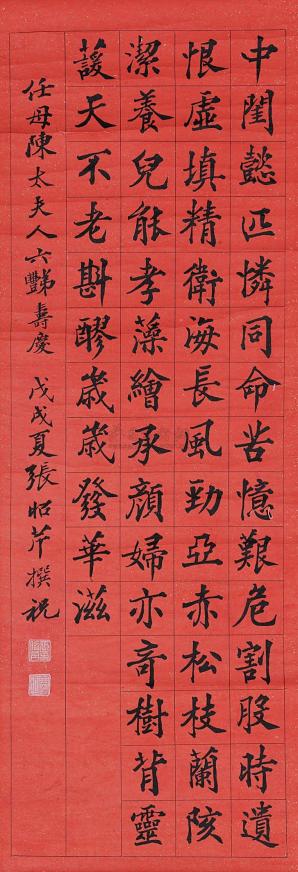 中閨懿匹憐同命苦憶艱危割股時遺
恨虛填精衛海長風勁亞赤松枝蘭陔
潔養兒能孝藻繪承顏婦亦奇樹背靈
萲天不老斟醪歲歲發華滋
任母陳太夫人六豑壽慶 戊戌夏張昭芹撰祝